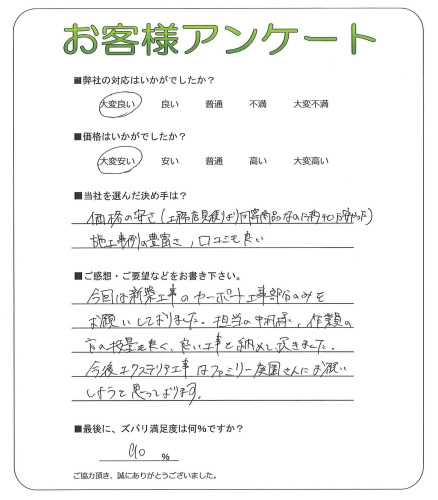 お客様アンケート
■弊社の対応はいかがでしたか？
大変良い 良い 普通 不満 大変不満
■価格はいかがでしたか？
大変安い 安い 普通 高い 大変高い
■当社を選んだ決め手は？
価格の安さ(工務店見積りより同等商品なのに約40万安かった)
施工事例の豊富さ、口コミも良い
■ご感想・ご要望などをお書き下さい。
今回は新築工事のカーポート工事部分のみを
お願いしておりました。担当の中村様、作業員の
方の技量も良く、良い工事を納めて頂きました。
今後エクステリア工事はファミリー庭園さんにお願い
しようと思っております。
■最後に、ズバリ満足度は何%ですか？
90 %
ご協力頂き、誠にありがとうございました。